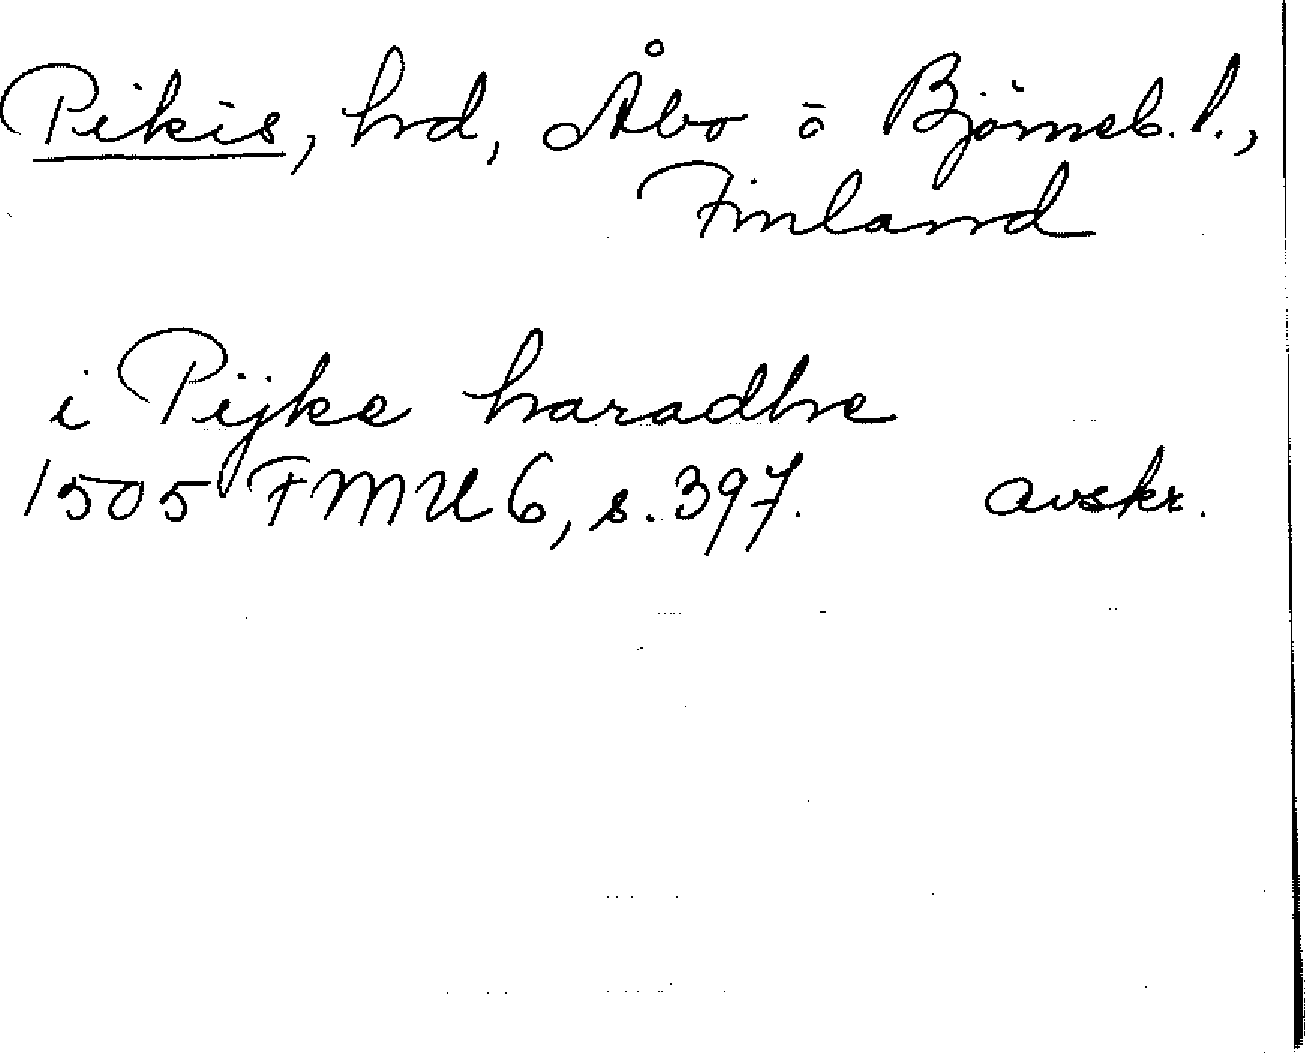 Pikis, hrd, Åbo o Björneb. l.,
Finland
i Pijke haradhe
1505 FMU 6, s. 397. avskr.